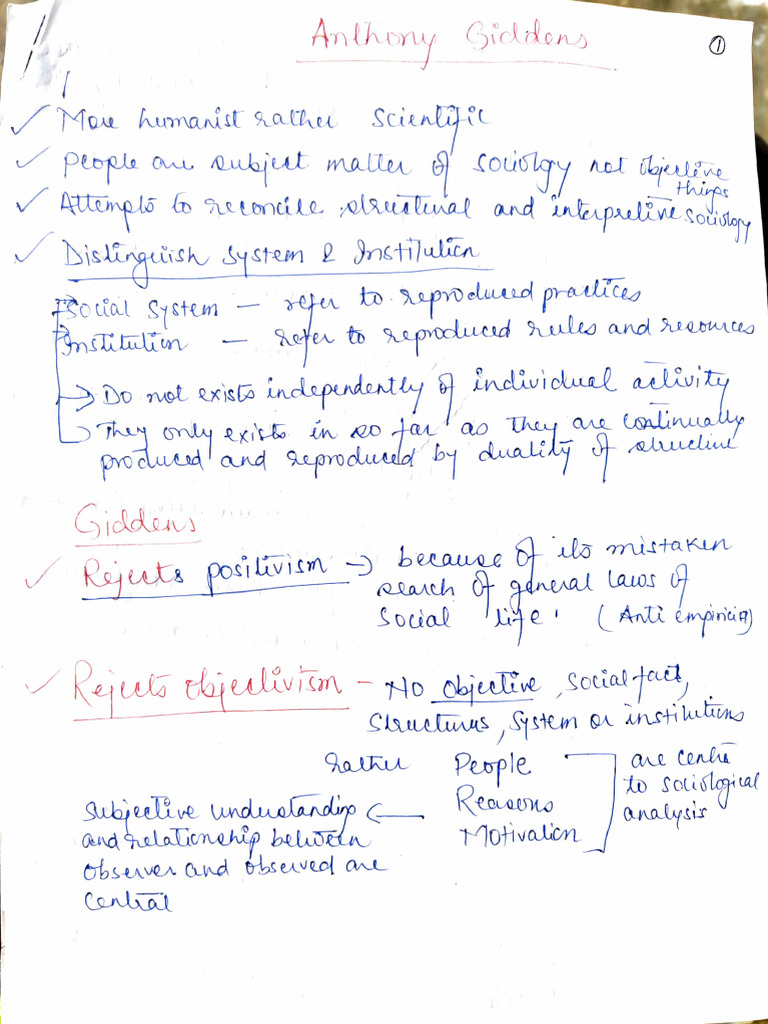 Anthony Giddens
①
✓ More humanist rather scientific
✓ People are subject matter of sociology not objective
things
✓ Attempts to reconcile structural and interpretive sociology
✓ Distinguish System & Institution
→ Social System — refer to reproduced practices
→ Institution — refer to reproduced rules and resources
→ Do not exists independently of individual activity
They only exists in so far as they are continually
produced and reproduced by duality of structure
Giddens
✓ Rejects positivism → because of its mistaken
search of general laws of
Social life. (Anti empiricist)
✓ Rejects objectivism - No objective, social fact,
Structures, System or institutions
rather People are centre
Reasons to sociological
Motivation analysis
Subjective understanding ←
and relationship between
Observer and observed are
Central